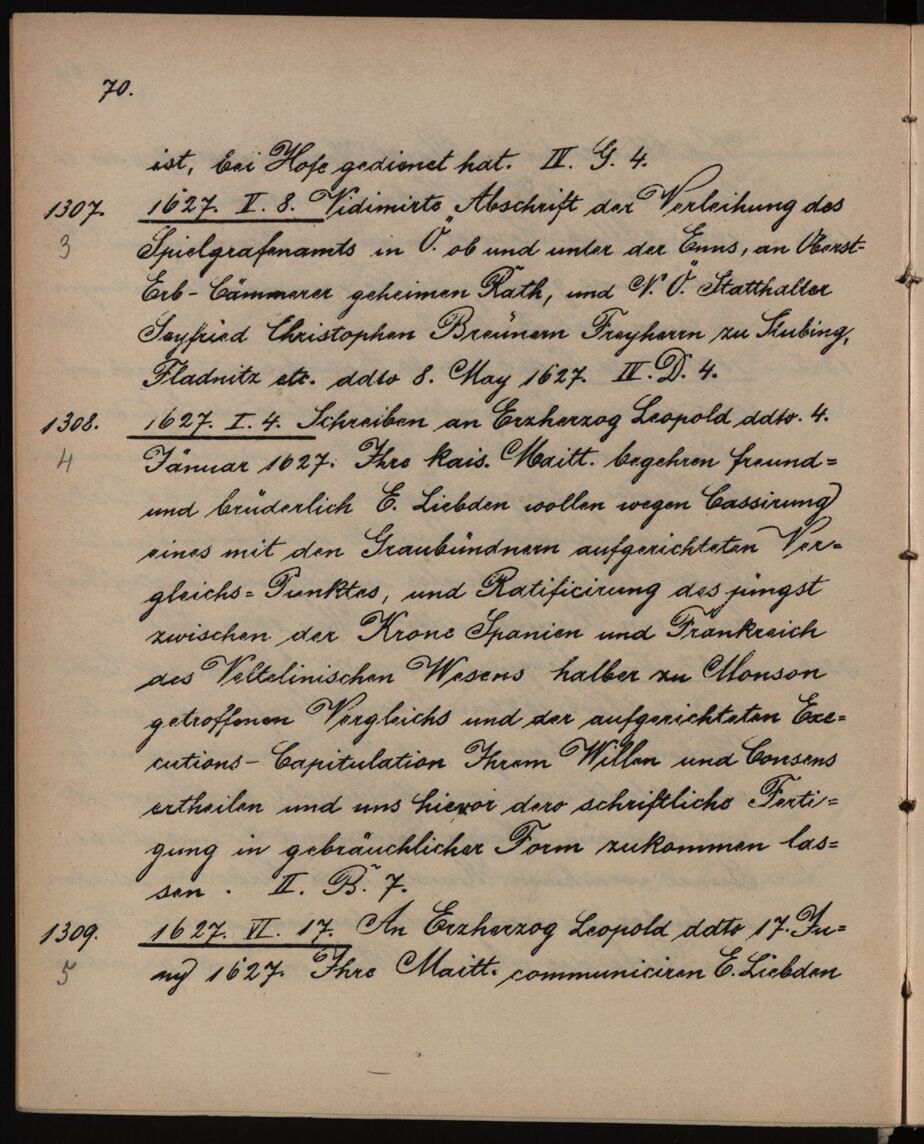 70.
ist, bei Hofe gedienet hat. III. G. 4.
1307. 1627. V. 8. Vidimirte Abschrift der Verleihung des
3 Spielgrafenamts in Ö. ob und unter der Enns, an Oberst-
Erb-Cämmerer geheimen Rath, und N. Ö. Statthalter
Seyfried Christophen Breünern Freyherrn zu Stubing,
Fladnitz etc. ddto 8. May 1627. IV. D. 4.
1308. 1627. I. 4. Schreiben an Erzherzog Leopold ddto. 4.
4 Jänuar 1627. Ihre kais. Maitt. begehren freund=
und brüderlich E. Liebden wollen wegen Cassirung
eines mit den Graubündnern aufgerichteten Ver=
gleichs=Punktes, und Ratificirung des jüngst
zwischen der Krone Spanien und Frankreich
des Veltelinischen Wesens halber zu Monson
getroffenen Vergleichs und der aufgerichteten Exe=
cutions-Capitulation Ihrem Willen und Consens
ertheilen und uns hievor dero schriftliche Ferti=
gung in gebräuchlicher Form zukommen las=
sen. II. B. 7.
1309. 1627. VI. 17. An Erzherzog Leopold ddto 17. Ju=
5 ny 1627. Ihre Maitt. communiciren E. Liebden